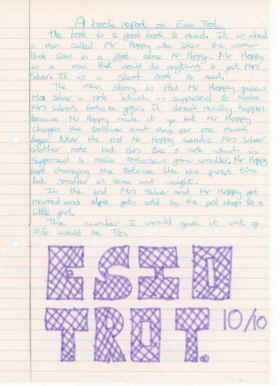 A book report on Esio Trot
The book is a good book to read. It is about
a man called Mr Hoppy who likes the woman
that lives in a flat below Mr Hoppy. Mr Hoppy
is a man that would do anything to get Mrs
Silver. It is a short book to read.
The main story is that Mr Hoppy gives
Mrs Silver a note which is supposed to make
Mrs Silver's tortoise grow. It doesn't really happen
because Mr Hoppy made it up but Mr Hoppy
changes the tortoise each day for one much
bigger. After the end Mr Hoppy sends Mrs Silver
another note but this time a note which is
supposed to make tortoises grow smaller. Mr Hoppy
kept changing the tortoise like he was first time
but smaller in size and weight.
In the end Mrs Silver and Mr Hoppy get
married and Alfie gets sold by the pet shop to a
little girl.
The number I would give it out of
10 would be Ten.
ESIO
TROT.
10/10